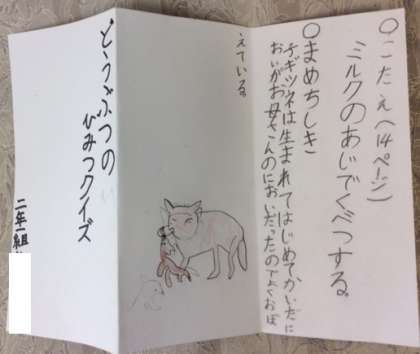 ○こたえ(14ページ)
ミルクのあじでくべつする。
○まめちしき
子ギツネは生まれてはじめてかいだに
おいがお母さんのにおいだったのでよくおぼ
えている。
どうぶつの
ひみつクイズ
二年一組